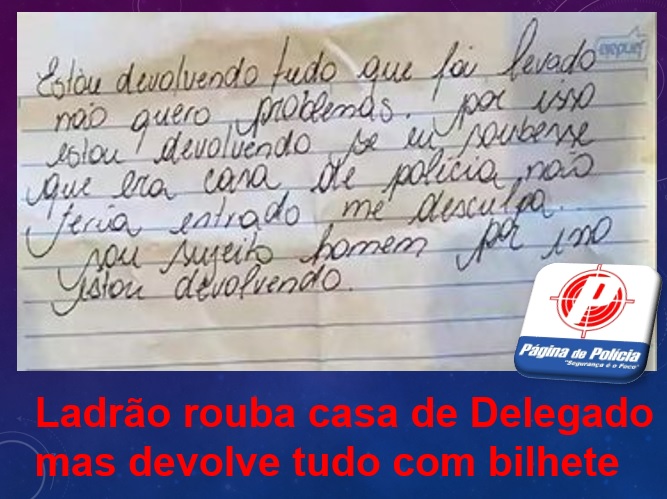 Estou devolvendo tudo que foi levado
não quero problemas. por isso
estou devolvendo se eu soubesse
que era casa de polícia não
teria entrado me desculpa...
sou sujeito homem por isso
estou devolvendo.
Página de Polícia
"Segurança é o Foco"
Ladrão rouba casa de Delegado
mas devolve tudo com bilhete